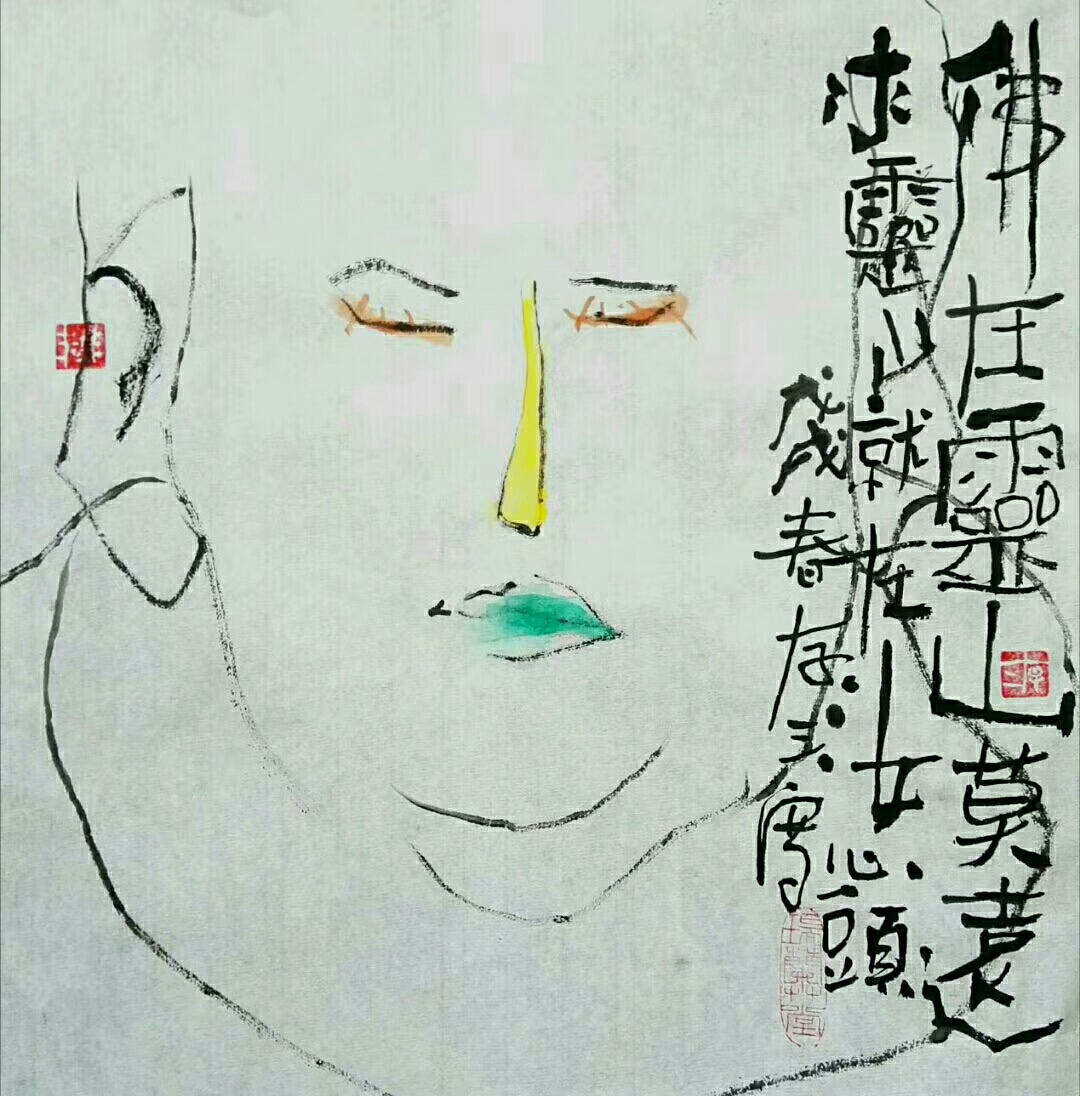 佛在靈山莫遠
求靈山就在汝心頭
戊戌春存玉寫